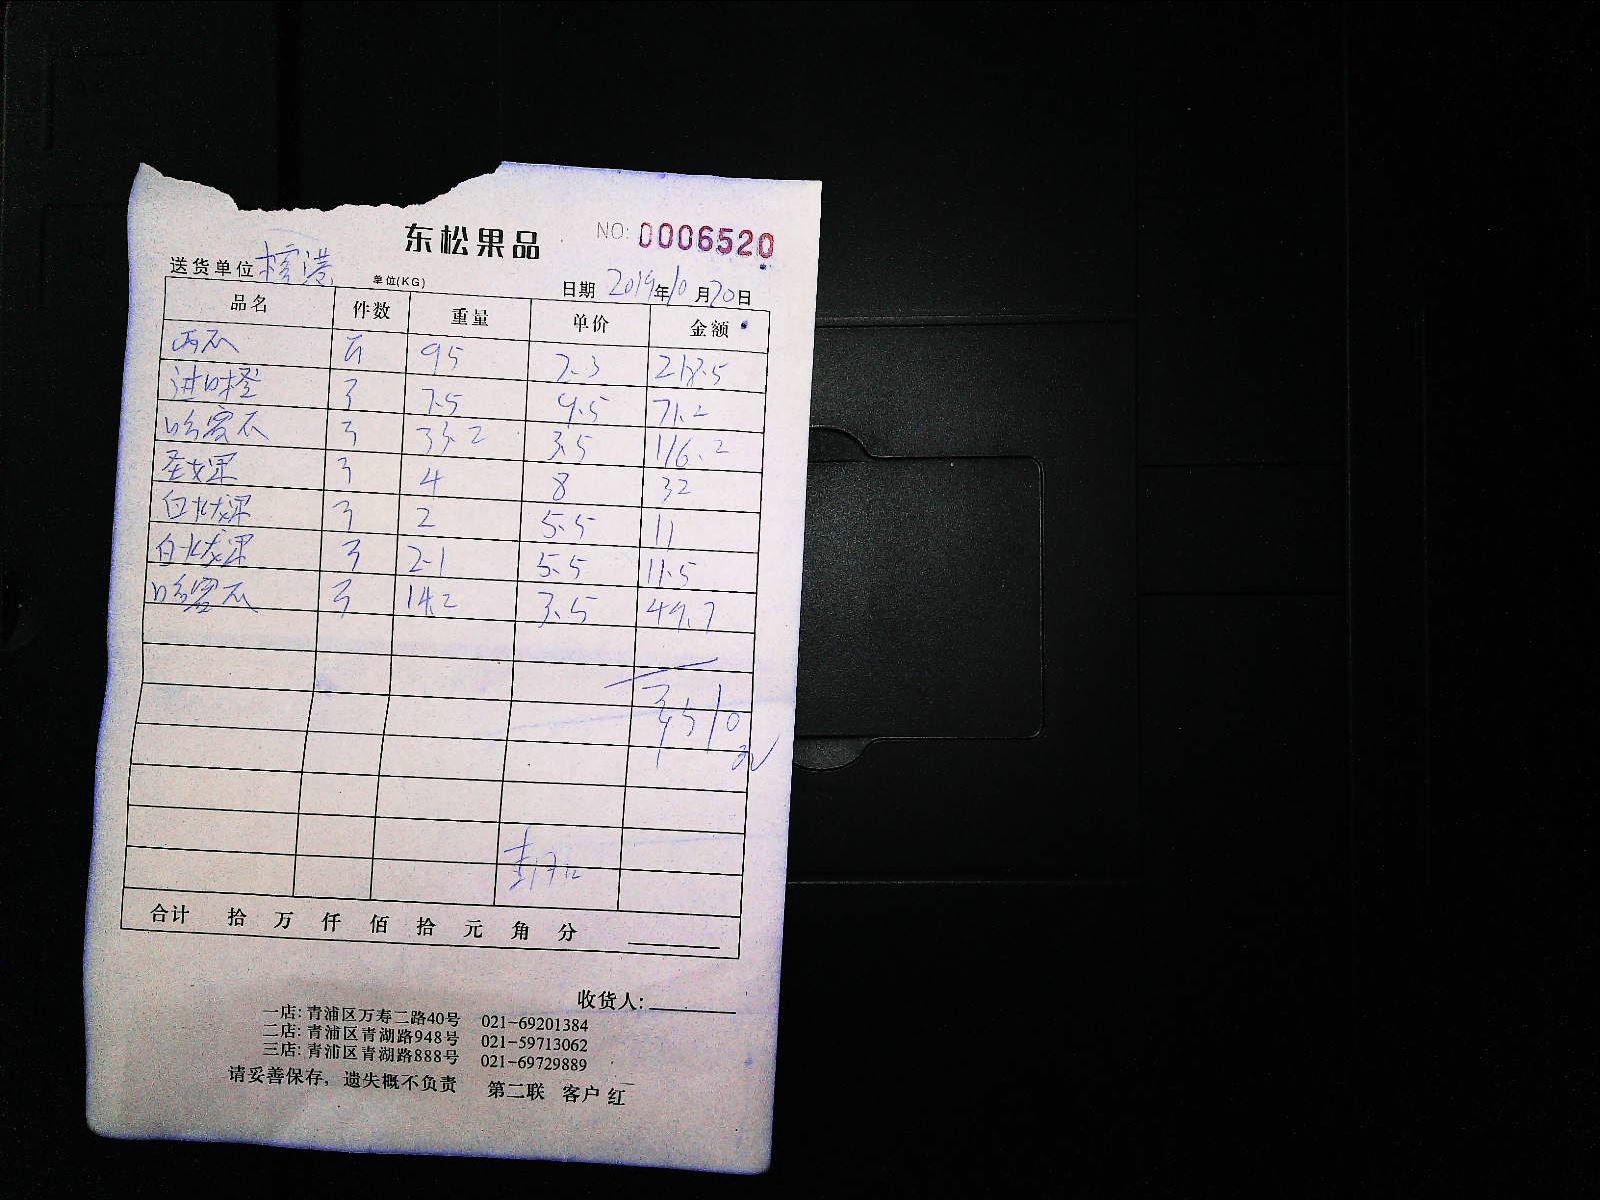 东松果品 NO: 0006520
送货单位 单位(KG) 日期 2019年10月20日
品名 件数 重量 单价 金额
西瓜 95 2.3 218.5
进口橙 3 7.5 9.5 71.2
哈密瓜 3 33.2 3.5 116.2
圣女果 3 4 8 32
白火龙果 3 2 5.5 11
白火龙果 3 2.1 5.5 11.5
哈密瓜 3 14.2 3.5 49.7
510
合计 拾 万 仟 佰 拾 元 角 分
收货人:
一店: 青浦区万寿二路40号 021-69201384
二店: 青浦区青湖路948号 021-59713062
三店: 青浦区青湖路888号 021-69729889
请妥善保存, 遗失概不负责 第二联 客户 红